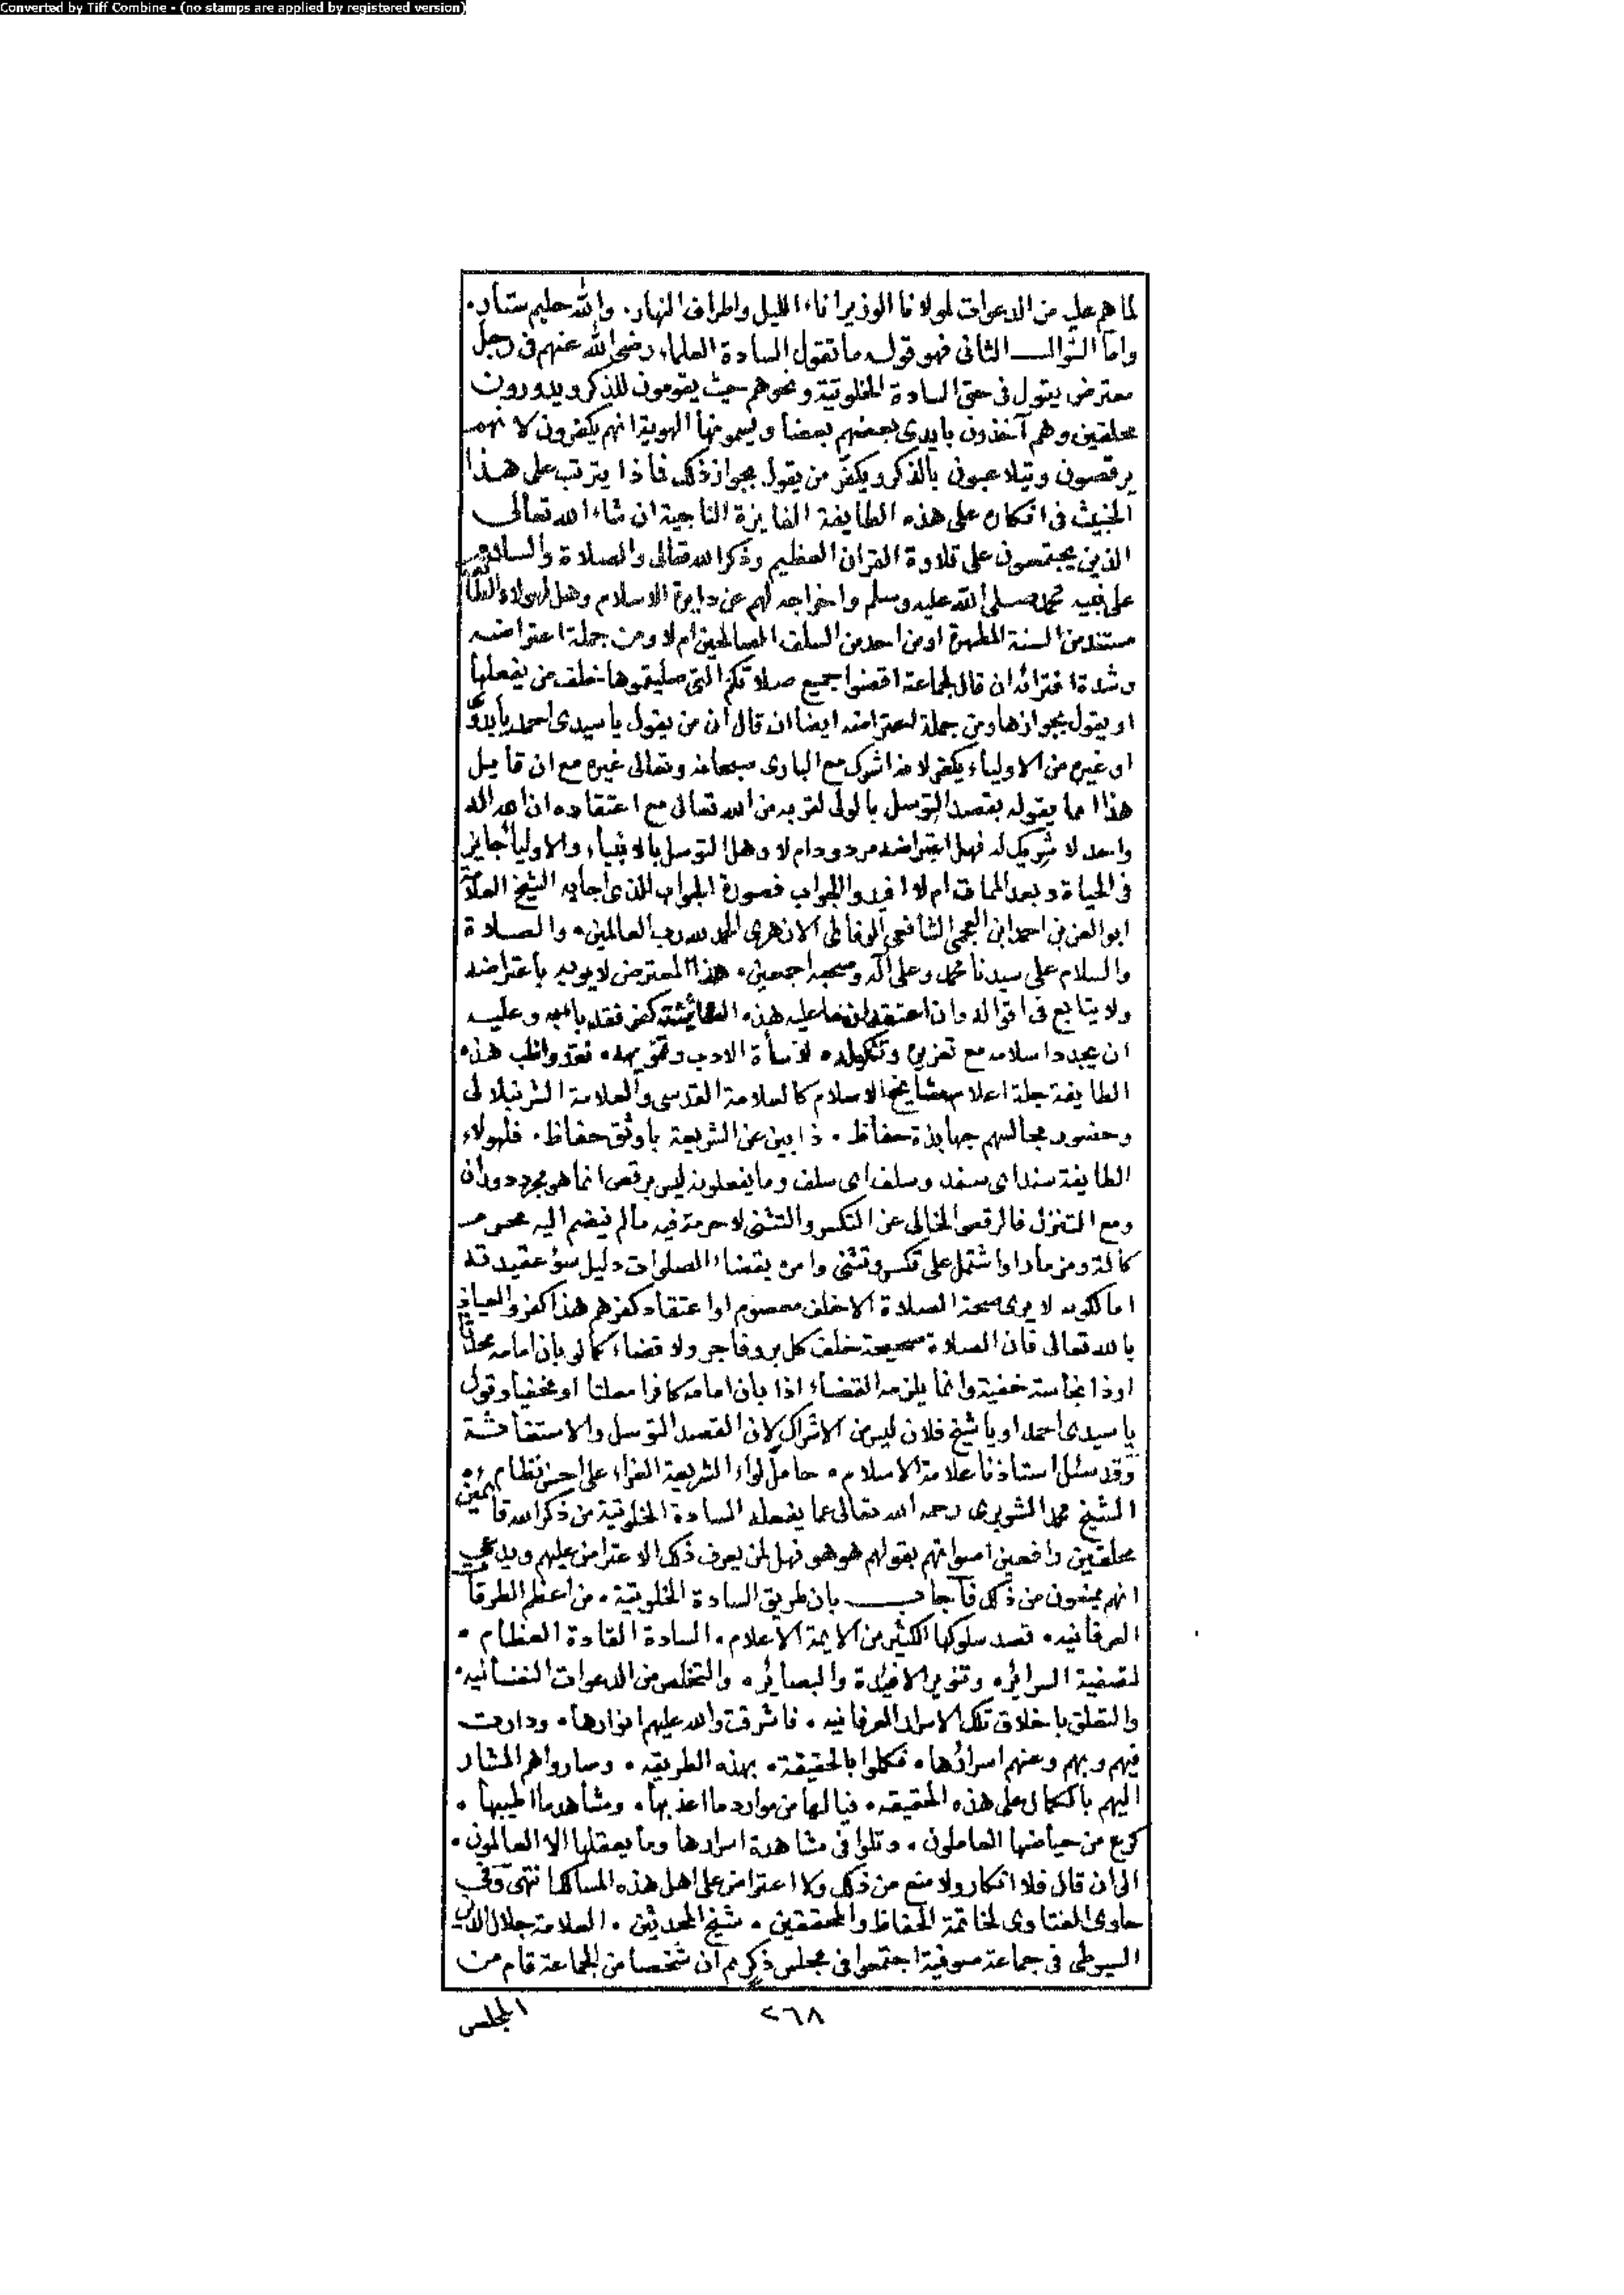 Converted by Tiff Combine - (no stamps are applied by registered version)
لما هم عليه من الدعوات لمولانا الوزير اناء الليل واطراف النهار. والله حليم ستار.
واما السوال الثانى فهو قوله ما تقول السادة العلماء رضى الله عنهم فى رجل
معترض يقول فى حق السادة الخلوتية ونحوهم حيث يقومون للذكر ويدورون
محلقين وهم آخذون بايدى بعضهم بعضا ويسمونها الهوية انهم يكفرون لانهم
يرقصون ويتلاعبون بالذكر ويكفر من يقول بجواز ذلك فماذا يترتب على هذا
الخبيث فى انكاره على هذه الطايفة الفايزة الناجية ان شاء الله تعالى
الذين يجتمعون على تلاوة القران العظيم وذكر الله تعالى والصلاة والسلام
على نبيه محمد صلى الله عليه وسلم واخراجه لهم عن دايرة الاسلام وهل لهولاء الطايفة
مستند من السنة المطهرة او من احد من السلف الصالحين ام لا ومن جملة اعتراضه
وشدة افترائه ان قال لجماعة اقضوا جميع صلاتكم التى صليتموها خلف من يفعلها
او يقول بجوازها ومن جملة اعتراضه ايضا ان قال ان من يقول يا سيدى احمد يا بدوى
او غيره من الاولياء يكفر لانه اشرك مع البارى سبحانه وتعالى غيره مع ان قايل
هذا انما يقوله بقصد التوسل بالولى لقربه من الله تعالى مع اعتقاده ان الله اله
واحد لا شريك له فهل اعتراضه مردود ام لا وهل التوسل بالانبياء والاولياء جايز
فى الحياة وبعد الممات ام لا افيدوا الجواب فصورة الجواب الذى اجابه الشيخ العلامة
ابو العز بن احمد ابن العجمى الشافعى الوفائى الازهرى الحمد لله رب العالمين. والصلاة
والسلام على سيدنا محمد وعلى آله وصحبه اجمعين. هذا المعترض لا يوبه باعتراضه
ولا يتابع فى اقواله وان اعتقد ان فاعليه هذه الطايفة كفر فقد باء به وعليه
ان يجدد اسلامه مع تعزيره وتنكيله. لاسأة الادب وتهوره. فقد واظب هذه
الطايفة جلة اعلام مشايخ الاسلام كالعلامة القدسى والعلامة الشرنبلالى
وحضور مجالسهم جهابذة حفاظ. ذابين عن الشريعة باوثق حفاظ. فلهولاء
الطايفة سند اى سند وسلف اى سلف وما يفعلونه ليس برقص انما هو مجرد دوران
ومع التنزل فالرقص الخالى عن التكسر والتثنى لا حرمة فيه مالم ينضم اليه محرم
كآلة ومزمار او اشتمل على تكسر وتثنى وامره بقضاء الصلوات دليل سؤ عقيدته
اما لكونه لا يرى صحة الصلاة الا خلف معصوم او اعتقاد كفرهم هذا كفر والعياذ
بالله تعالى فان الصلاة صحيحة خلف كل بر وفاجر ولا قضاء كما لو بان امامه محدثا
او ذا نجاسة خفية وانما يلزمه القضاء اذا بان امامه كافرا معلنا او مخفيا وقول
يا سيدى احمد او يا شيخ فلان ليس من الاشراك لان القصد التوسل والاستغاثة
وقد سئل استاذنا علامة الاسلام. حامل لواء الشريعة الغراء على احسن نظام.
الشيخ محمد الشوبرى رحمه الله تعالى عما يفعله السادة الخلوتية من ذكر الله قائمين
محلقين رافعين اصواتهم بقولهم هو هو فهل لمن يعرف ذلك الاعتراض عليهم ويدعى
انهم يمنعون من ذلك فاجاب بان طريق السادة الخلوتية. من اعظم الطرقات
العرفانيه. قصد سلوكها الكثير من الايمة الاعلام. السادة القادة العظام.
لتصفية السرائر. وتنوير الافيدة والبصائر. والتخلص من الدعوات النفسانيه.
والتخلق باخلاق تلك الاسرار العرفانيه. فاشرقت والله عليهم انوارها. ودارت
فيهم وبهم وعنهم اسرارها. فكملوا بالحقيقة. بهذه الطريقه. وصاروا هم المشار
اليهم بالكمال على هذه الحقيقه. فيا لها من موارد ما اعذبها. ومشاهد ما اطيبها.
كرع من حياضها العاملون. وتلوا فى مشاهدة اسرارها وما يعقلها الا العالمون.
الى ان قال فلا انكار ولا منع من ذلك ولا اعتراض على اهل هذه المسالك انتهى وفى
حاوى الفتاوى لخاتمة الحفاظ والمحققين. شيخ المحدثين. العلامة جلال الدين
السيوطى فى جماعة صوفية اجتمعوا فى مجلس ذكر ثم ان شخصا من الجماعة قام من
المجلس
٢٦٨